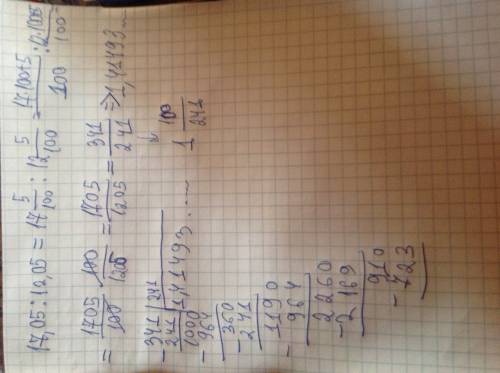 17,05:12,05 = 17 5/100 : 12 5/100 = 17·100+5/100 : 12·100+5/100 =
= 1705/100 · 100/1205 = 1705/1205 = 341/241 => 1,41493...
1 100/241
- 341 | 241
241 | 1,41493....
- 1000
964
- 360
241
- 1190
964
- 2260
2169
- 910
723